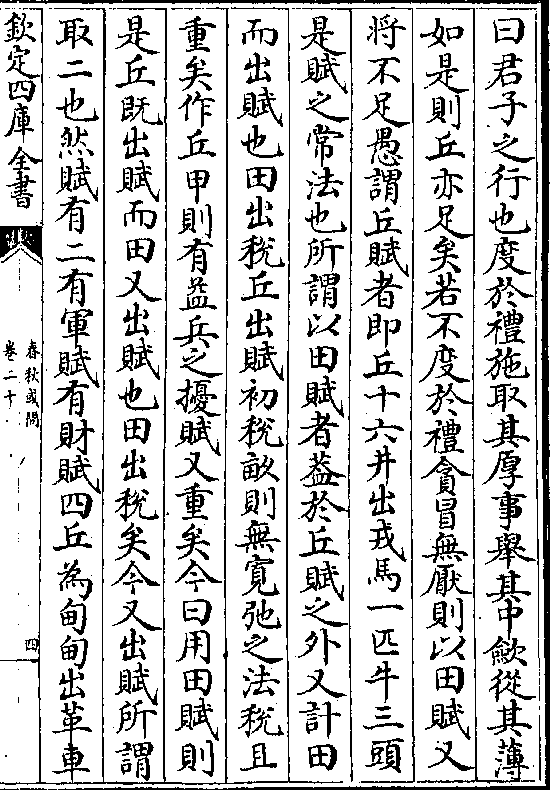 曰君子之行也度於禮施取其厚事舉其中歛從其薄
如是則丘亦足矣若不度於禮貪冒無厭則以田賦又
將不足愚謂丘賦者即丘十六井出戎馬一匹牛三頭
是賦之常法也所謂以田賦者葢於丘賦之外又計田
而出賦也田出稅丘出賦初稅畝則無寛弛之法稅且
重矣作丘甲則有益兵之擾賦又重矣今曰用田賦則
是丘既出賦而田又出賦也田出稅矣今又出賦所謂
取二也然賦有二有軍賦有財賦四丘為甸甸出革車
欽定四庫全書
春秋或問
卷二十
四